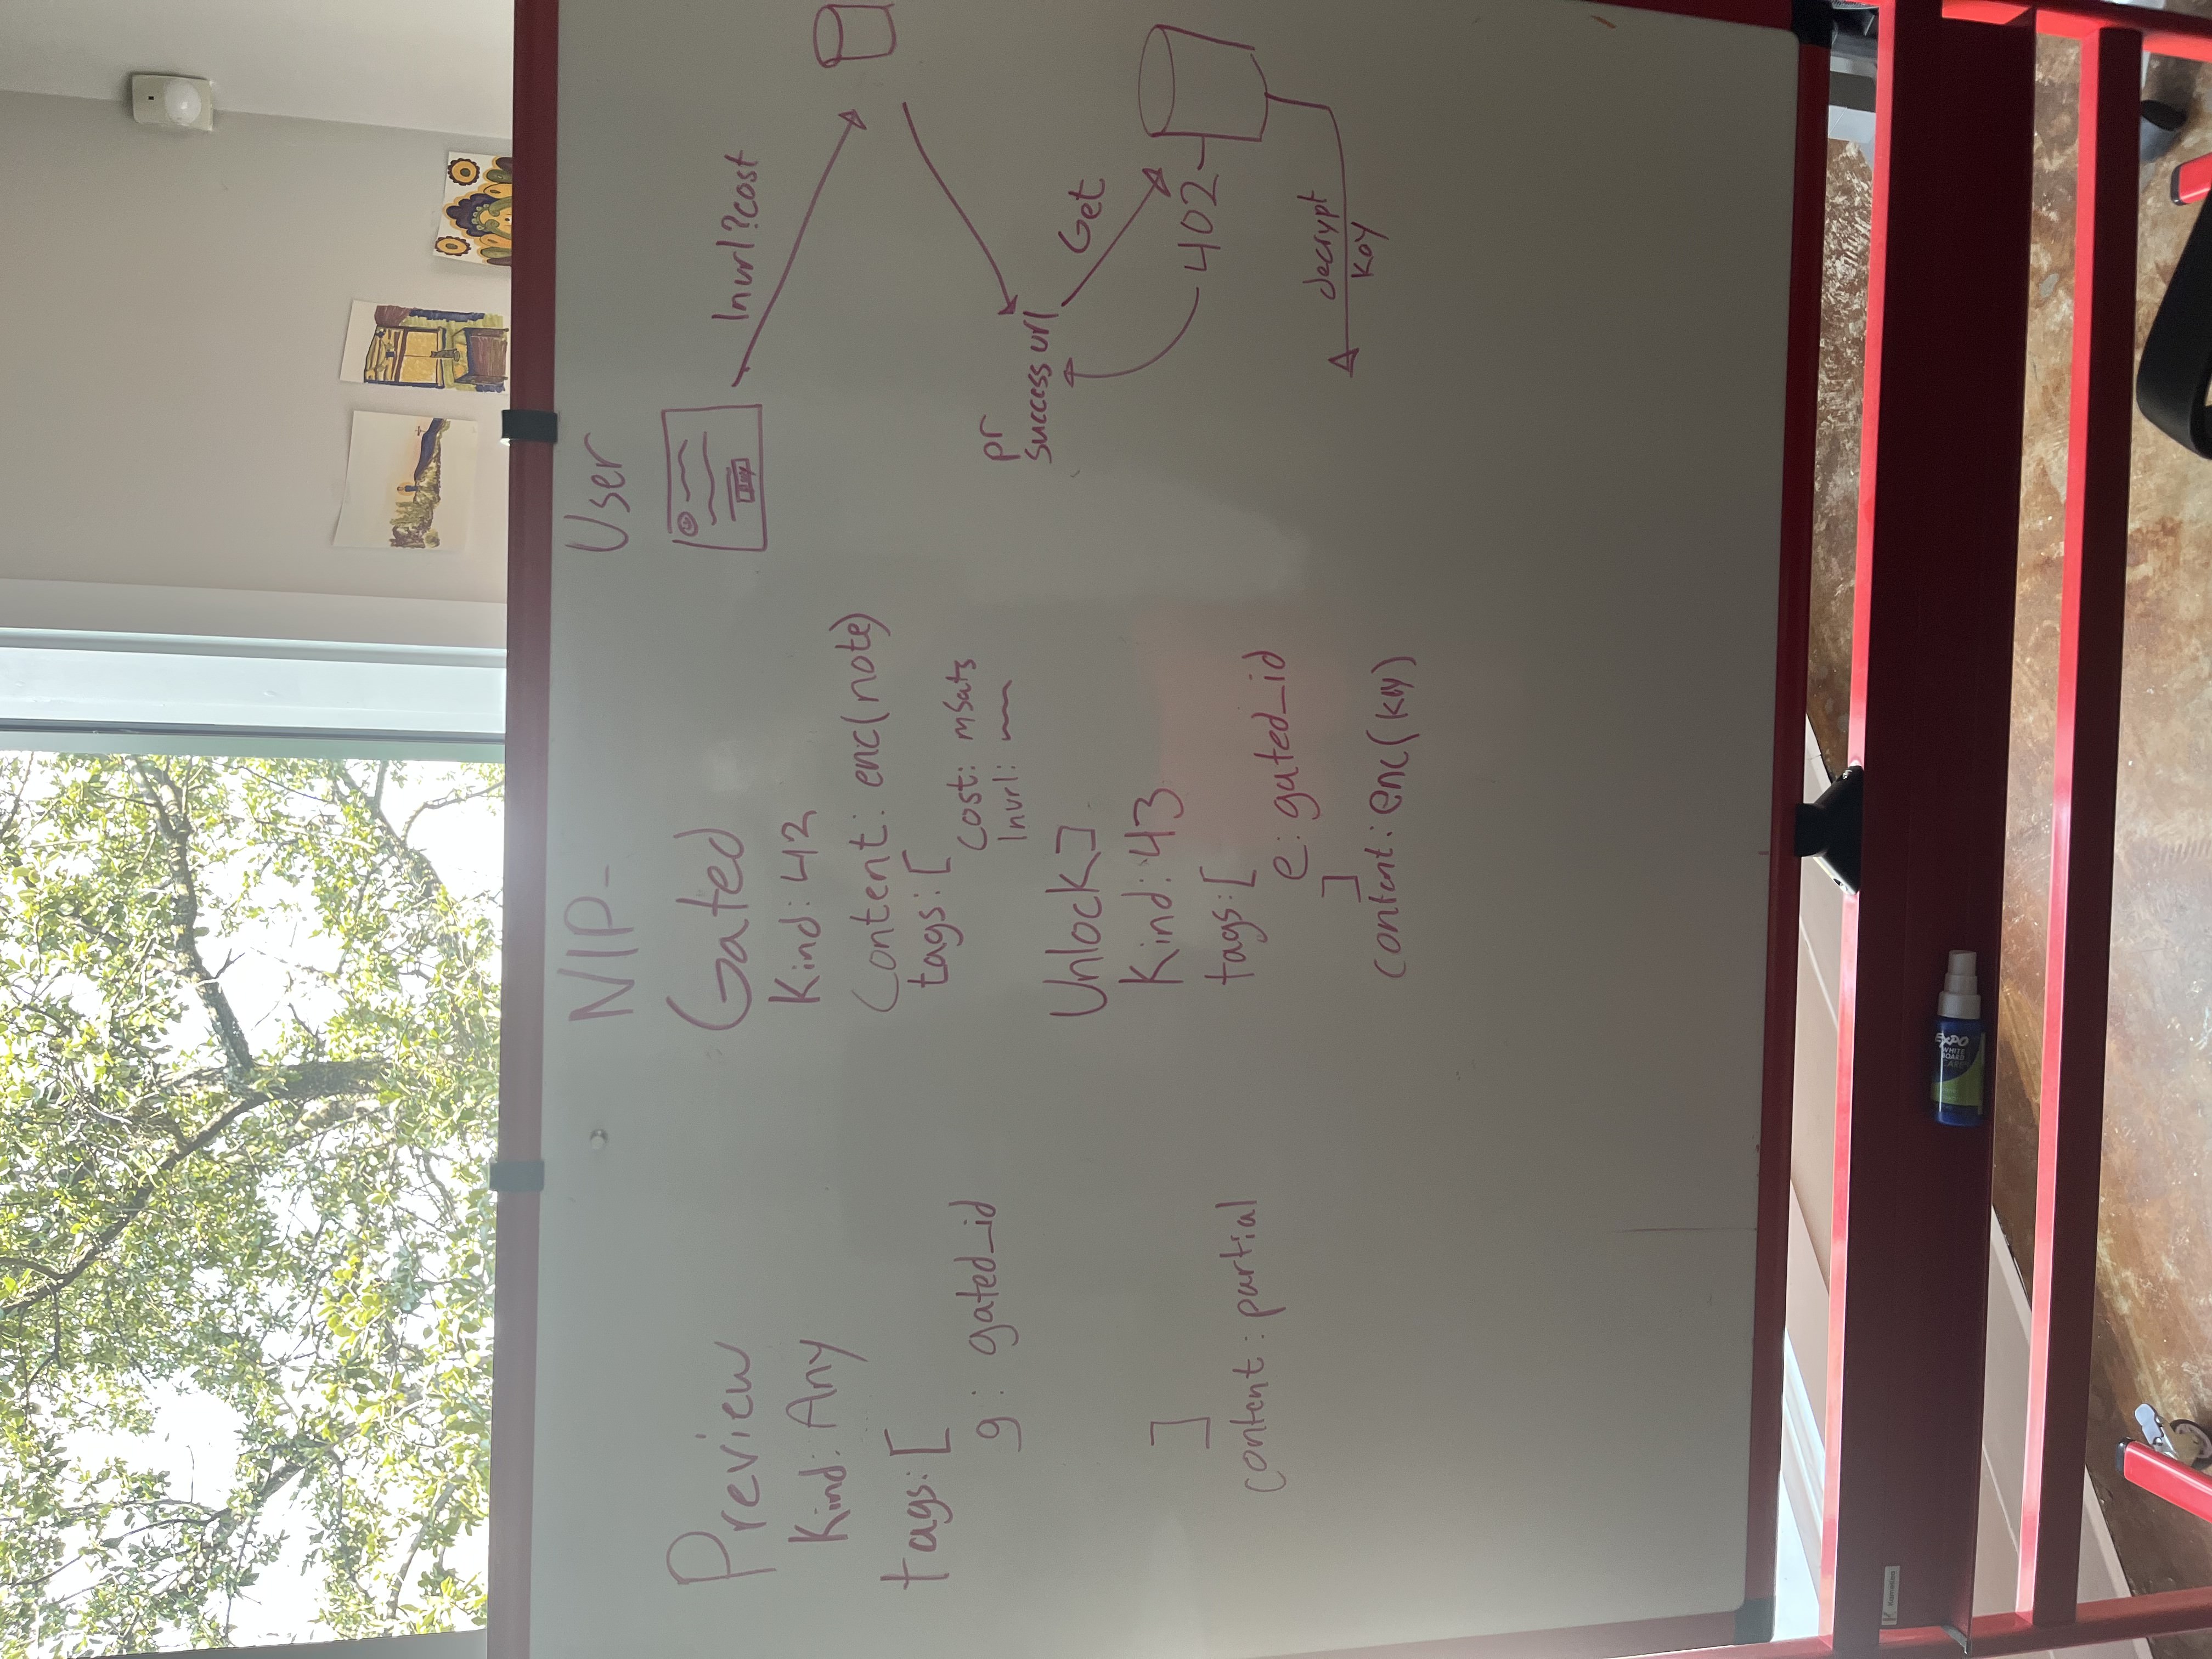 NIP-
Preview
Kind: Any
tags: [
g: gated_id
]
content: partial
Gated
Kind: 42
Content: enc(note)
tags: [
Cost: mSats
lnurl:
Unlock ]
Kind: 43
tags: [
e: gated_id
]
content: enc(key)
User
Buy
lnurl?cost
pr
success url
Get
402
decrypt
key
EXPO
WHITE
BOARD
CARE
K Kamelleo